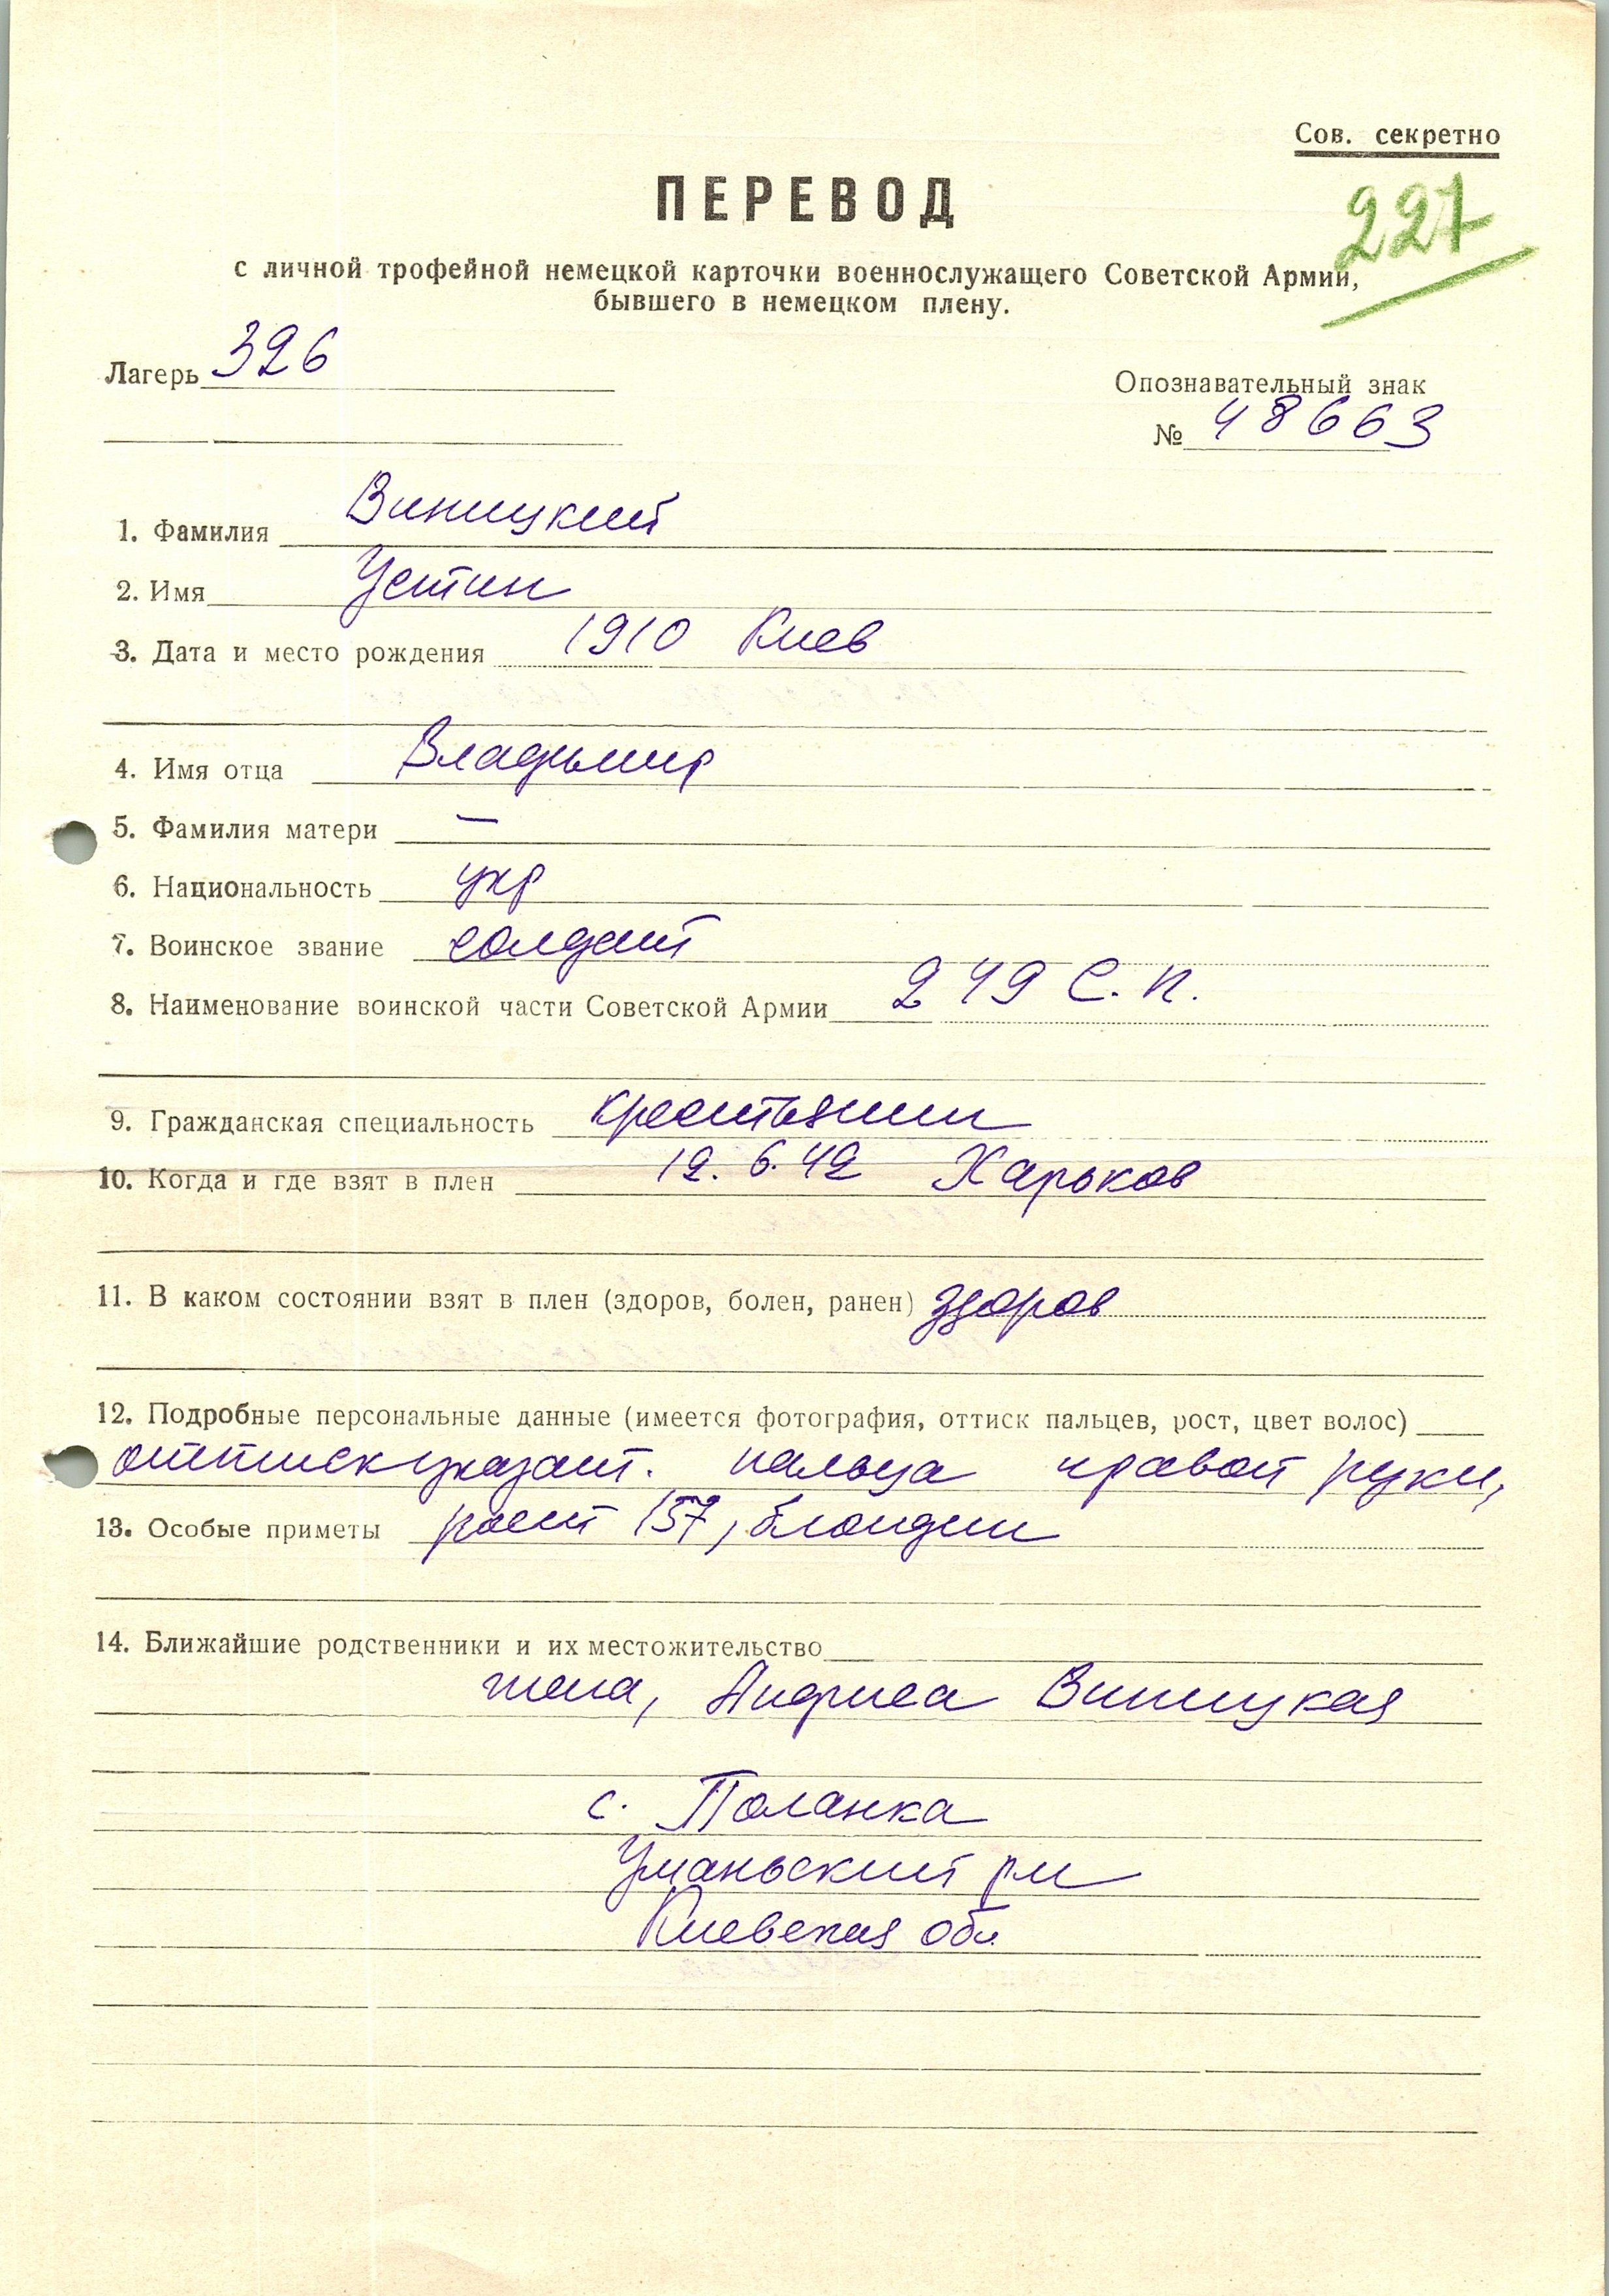 Сов. секретно
ПЕРЕВОД
227
с личной трофейной немецкой карточки военнослужащего Советской Армии,
бывшего в немецком плену.
Лагерь 326
Опознавательный знак
№ 48663
1. Фамилия Виницкий
2. Имя Устин
3. Дата и место рождения 1910 Киев
4. Имя отца Владымир
5. Фамилия матери —
6. Национальность укр
7. Воинское звание солдат
8. Наименование воинской части Советской Армии 249 С.п.
9. Гражданская специальность крестьянин
10. Когда и где взят в плен 12.6.42 Харьков
11. В каком состоянии взят в плен (здоров, болен, ранен) здоров
12. Подробные персональные данные (имеется фотография, оттиск пальцев, рост, цвет волос)
оттиск указат. пальца правой руки,
13. Особые приметы рост 157, блондин
14. Ближайшие родственники и их местожительство
жена, Виницкая
с. Поланка
Уманьский рн
Киевская обл.